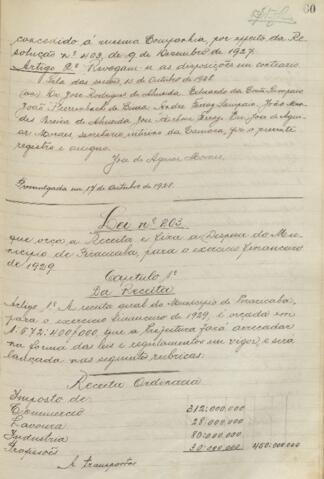 60
concedido á mesma Companhia, por effeito da Re-
solução nº 403, de 9 de Dezembro de 1927.
Artigo 2º Revogam-se as disposições em contrario.
Sala das sessões, 15 de Outubro de 1928.
(aa) Dr. José Rodrigues de Almeida, Eduardo da Costa Sampaio
João de Lima, André Ferraz Sampaio, João Men-
des Pereira de Almeida, José Ferraz. Eu, José de Agui-
ar Moraes, secretario interino da Camara, fiz o presente
registro e assigno.
José de Aguiar Moraes.
Promulgada em 17 de Outubro de 1928.
Lei nº 203.
que orça a Receita e fixa a Despeza do Mu-
nicipio de Piracicaba, para o exercicio financeiro
de 1929
Capitulo 1º
Da Receita
Artigo 1º A receita geral do Municipio de Piracicaba,
para o exercicio financeiro de 1929, é orçada em
1.572:400$000, que a Prefeitura fará arrecadar
na forma das leis e regulamentos em vigor, e será
lançada nas seguintes rubricas:
Receita Ordinaria
Imposto de:
Commercio 312:000.000
Lavoura 28:000.000
Industria 80:000.000
Profissões 30:000.000 450:000.000
A transportar